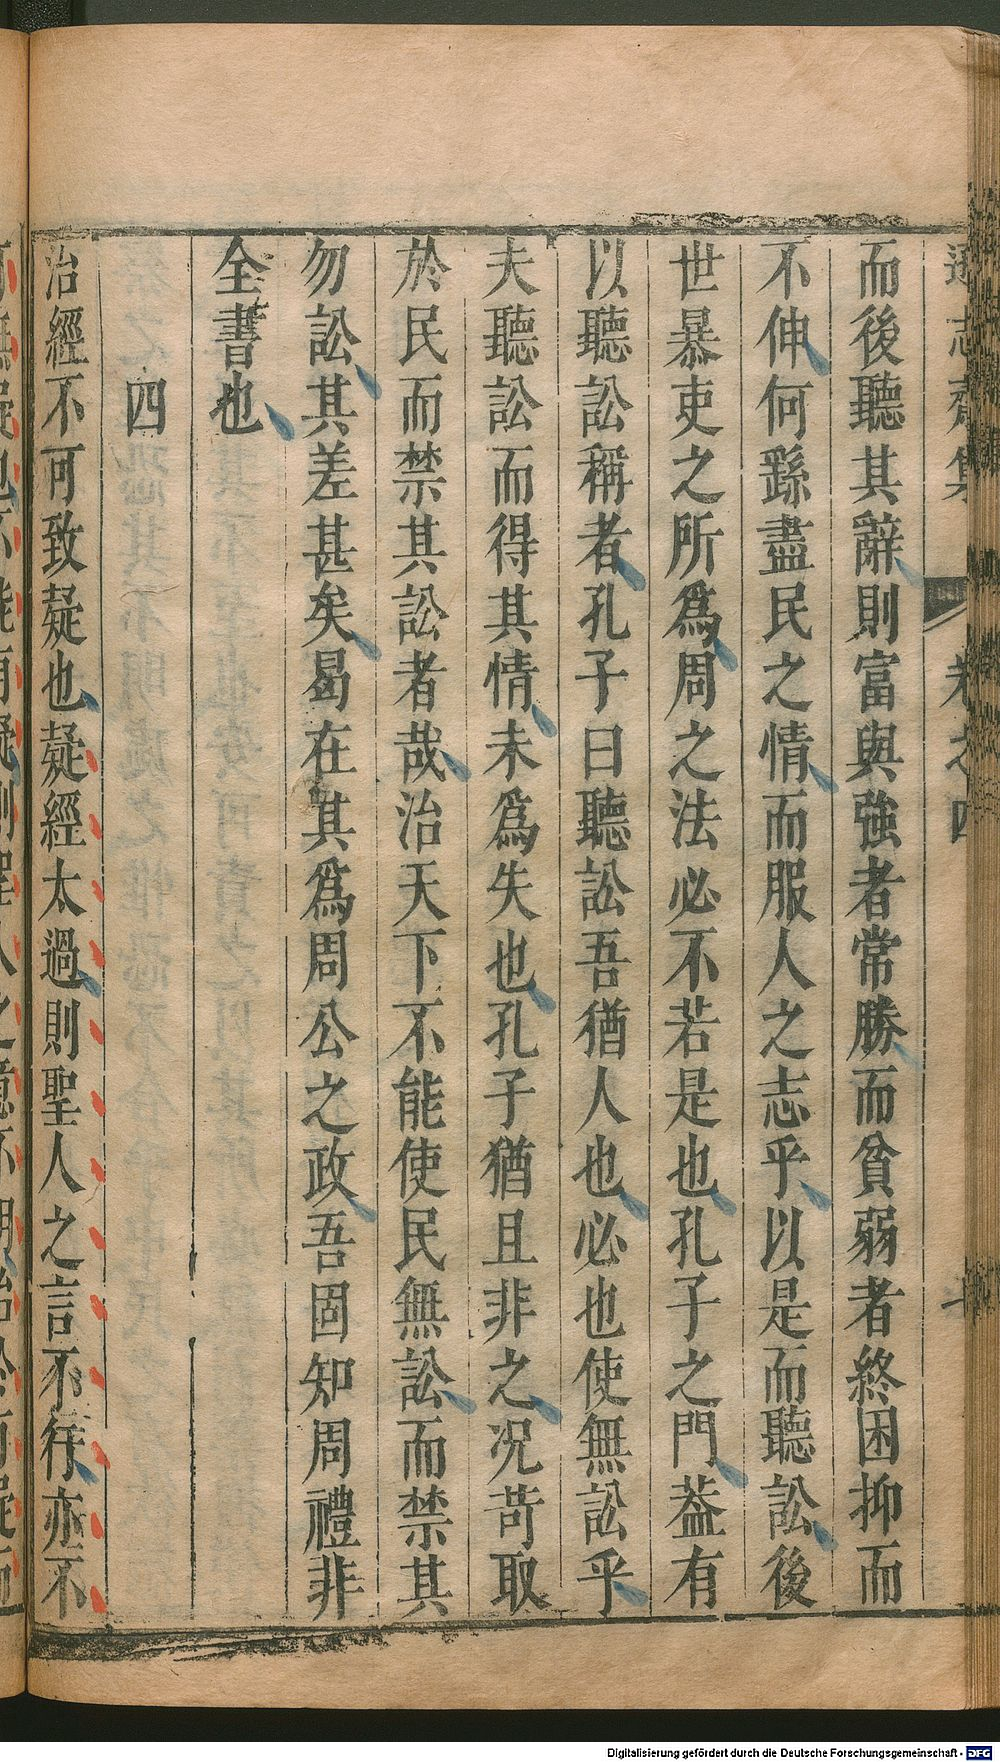 志齋集 卷之四
而後聽其辭則富與強者常勝而貧弱者終困抑而
不伸何繇盡民之情而服人之志乎以是而聽訟後
世暴吏之所爲周之法必不若是也孔子之門葢有
以聽訟稱者孔子曰聽訟吾猶人也必也使無訟乎
夫聽訟而得其情未爲失也孔子猶且非之况苛取
於民而禁其訟者哉治天下不能使民無訟而禁其
勿訟其差甚矣曷在其爲周公之政吾固知周禮非
全書也
四
治經不可致疑也疑經太過則聖人之言不行亦不
Digitalisierung gefördert durch die Deutsche Forschungsgemeinschaft - DFG